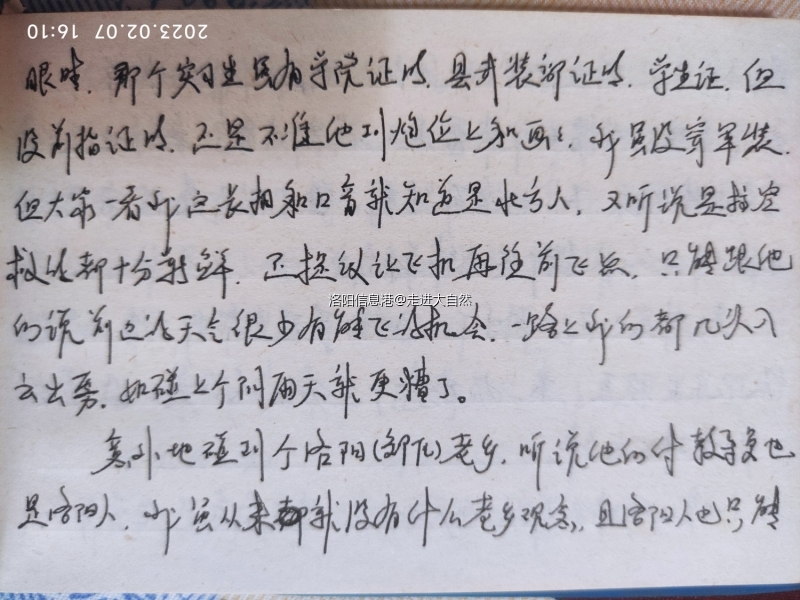 2023.02.07 16:10
眼睛。那个实习生虽有学院证明、县武装部证明、学生证,但
没前指证明,还是不准他到炮位上和画。我虽没穿军装,
但大家一看我这长相和口音就知道是北方人,又听说是
都十分新鲜,还提议让飞机再往前飞点,只能跟他
们说前边这天气很少有能飞的机会,一路上我们都几次入
云出雾,如碰上个阴雨天就更糟了。
洛阳信息港@走进大自然
意外地碰到个洛阳(邙)老乡,听说他们付教导员也
是洛阳人,我虽从来就没有什么老乡观念,且洛阳人也只能